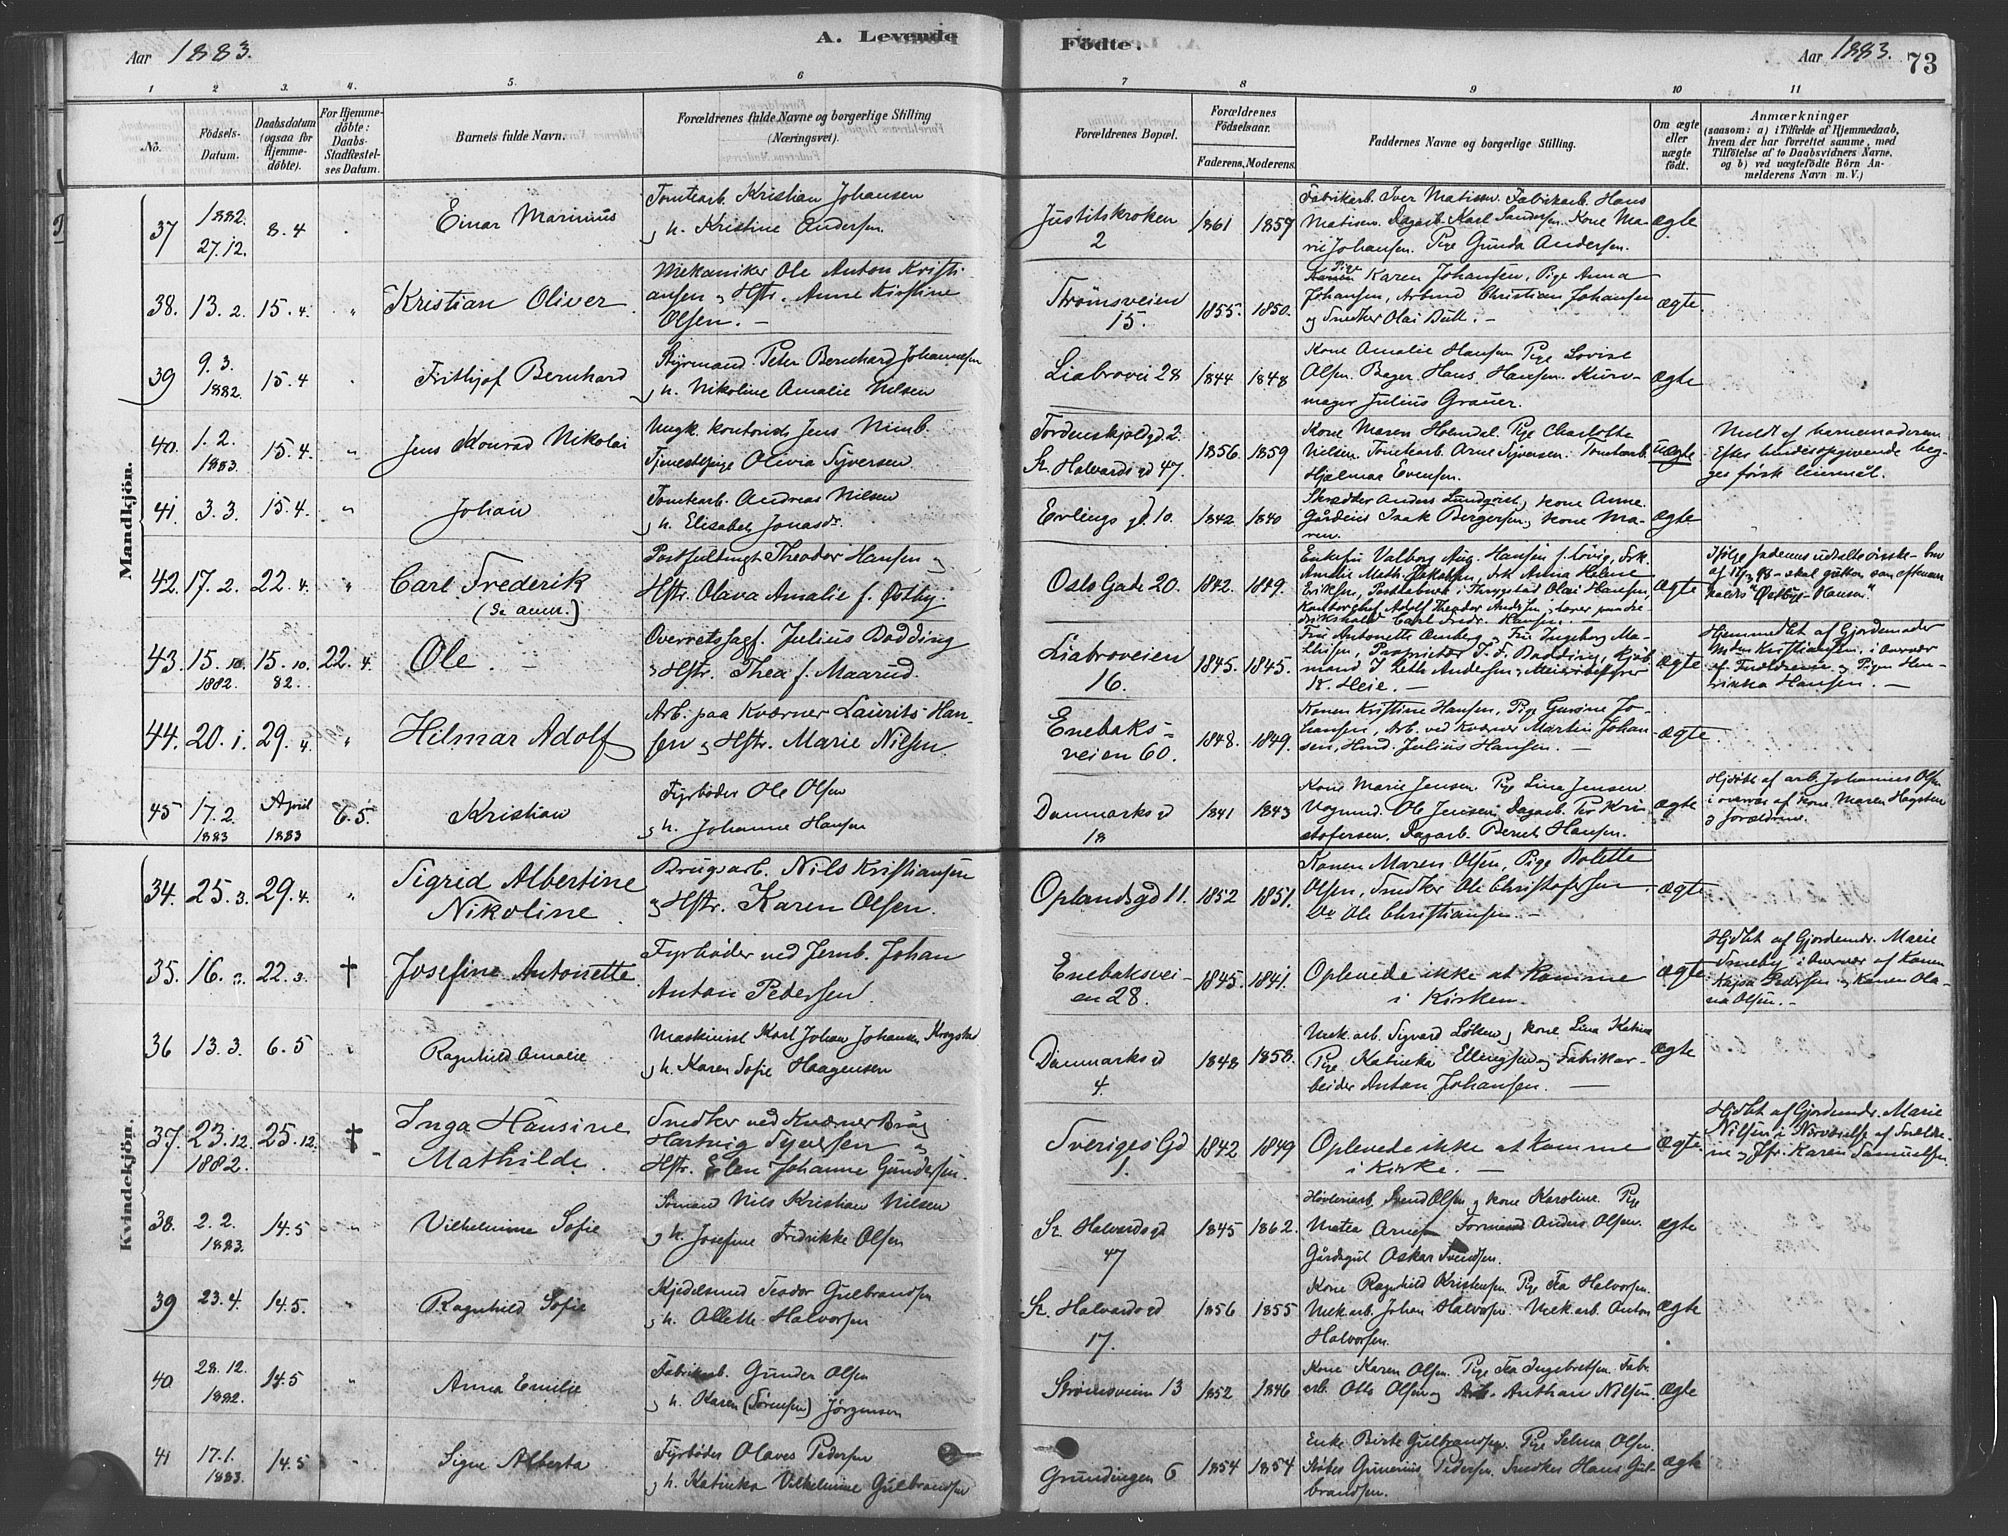 Aar 1883.
A. Levende Födte.
Aar 1883.
73
1 2 3. 4. 5. 6 7 8 9 10 11
No.
Födsels-
Datum.
Daabsdatum
(ogsaa for
Hjemme-
döbte).
For Hjemme-
döbte:
Daabs-
Stadfæstel-
ses Datum.
Barnets fulde Navn.
Forældrenes fulde Navne og borgerlige Stilling
(Næringsvei).
Forældrenes Bopæl.
Forældrenes
Födselsaar.
Faderens. Moderens.
Faddernes Navne og borgerlige Stilling.
Om ægte
eller
uægte
födt.
Anmærkninger
(saasom: a) i Tilfælde af Hjemmedaab,
hvem der har forrettet samme, med
Tilföielse af to Daabsvidners Navne,
og b) ved uægtefödte Börn An-
melderens Navn m. V.)
Mandkjön.
37
1882.
27.12.
8.4
Einar Marinius
Tomtearb. Kristian Johansen
og h. Kristine Andersen
Justitskroken
2
1861 1857
Fabrikarb. Iver Matisen. Fabrikarb. Hans
Matisen. Dagarb. Karl Sandersen. Kone Ma-
rie Johansen. Pige Gunda Andersen.
ægte
38. 13.2. 15.4. "
Kristian Oliver
Mekaniker Ole Anton Kristi-
ansen og Hstr. Anne Kirstine
Olsen. —
Strömsveien
15.
1855. 1850.
Pige Karen Johansen, Pige Anna
Johansen, Arbmd Christian Johansen
og Snedker Olai Bull. —
Ægte
39
9.3.
1882.
15.4
Frithjof Bernhard
Styrmand Peter Bernhard Johannesen
og h. Nikoline Amalie Nilsen
Liabrovei 28
1844 1848
Kone Amalie Hansen Pige Lovise
Olsen. Bager Hans Hansen. Kurv-
mager Julius Grauer.
Ægte
40.
1.2.
1883.
15.4. "
Jens Konrad Nikolai
Ungk. kontorist Jens Nimb.
Tjenestepige Olivia Syversen
Tordenskjoldgd 2.
St. Halvards gd 47.
1856. 1859
Kone Maren Holendal. Pige Charlotte
Nielsen. Tomtearb. Arne Syversen. Tomtearb.
Hjalmar Evensen.
Uægte
Meldt af barnemoderen.
Efter opgivende beg-
ges först leiermål.
41. 3.3. 15.4. "
Johan
Tomtearb. Andreas Nilsen
og h. Elisabet Jonasdr.
Erlings gd. 10.
1842. 1840
Skrædder Anders Lundqvist og Kone Anne.
Gårdeier Isak Bergersen og Kone Ma-
ren.
Ægte
42. 17.2. 22.4. "
Carl Frederik
(Se anm.)
Postfuldmgt Theodor Hansen og
Hstr. Olava Amalie f. Østby.
Oslo Gade 20.
1842. 1849.
Enkefru Valborg Aug. Hansen f. Frk.
Amalie Math. Jakobsen, Frk Anna Helene
Eriksen, Postaabner i Thrygstad Olai Hansen,
Adolf Theodor Andersen
Carl Fredr. Hansen. —
Ægte
Ifølge faderens udtalte önske — brev
af — skal gutten som efternavn
kaldes "Østbye-Hansen"
43. 15.10.
1882.
15.10.
82.
22.4.
Ole. —
Overretssagf. Julius Dodding
og Hstr. Thea f. Maarud.
Liabroveien
16.
1845. 1845.
Fru Antonette Fru Ingeborg Ma-
thisen, Proprietær J. F. Dodding, Kjöb-
mand J. Andersen
K. Heie. —
Ægte
Hjemmedbt af Gjordemoder
Kristiansen, i Overvær
af Forældrene og Pigen Hen-
rikka Hansen. —
44. 20.1. 29.4. "
Hilmar Adolf
Arb. paa Kværner Laurits Han-
sen og Hstr. Marie Nilsen
Enebaks-
veien 60.
1848. 1849.
Konen Kristine Hansen, Pige Gusine Jo-
hansen, Arb. ved Kværner Martin Johan-
sen, Julius Hansen. —
Ægte.
45
17.2.
1883
April
1883
6.5.
Kristian
Fyrböder Ole Olsen
og h. Johanne Hansen
Danmarks gd
18
1841 1843
Kone Marie Jensen. Pige Lina Jensen
Vognmd. Ole Jensen. Dagarb. Per Kris-
tofersen. Dagarb. Bernt Hansen.
Ægte
Hjdöbt af arb. Johannes Olsen
i overvær af kone Maren Hagsten
og forældrene.
Kvindekjön.
34. 25.3. 29.4. "
Sigrid Albertine
Nikoline
Brugsarb. Nils Kristiansen
og Hstr. Karen Olsen.
Oplandsgd 11.
1852 1851.
Konen Maren Olsen, Pige Bolette
Olsen, Snedker Ole Christofersen
Do Ole Christiansen. —
Ægte
35. 16.3. 22.3. †
Josefine Antonette.
Fyrböder ved Jernb. Johan
Anton Pedersen.
Enebaksvei-
en 28.
1845. 1841.
Oplevede ikke at komme
i Kirken. —
Ægte
Hjdbt af Gjordemdr. Marie
Sneby, i Overvær af Konen
Kajsa Pedersen og Konen Ola-
va Olsen. —
36 13.3. 6.5 "
Ragnhild Amalie
Maskinist Karl Johan Johansen Krogstad
og h. Karen Sofie Haagensen
Danmarks gd
4.
1848 1858.
Mek. arb. Sigvard Löken og Kone Lina Katrine
Pige Katinka Ellingsen og Fabrikar-
beider Anton Johansen. —
Ægte
37. 23.12.
1882.
25.12. †
Inga Hansine
Mathilde.
Snedker ved Kværner Brug
Hartvig Syversen og
Hstr. Elen Johanne Gundersen.
Sveriges Gd
1.
1842 1849
Oplevede ikke at komme
i Kirke. —
Ægte.
Hjdbt af Gjordemdr. Marie
Nilsen i Nærværelse af Foreldre-
ne og Jfr. Karen Samuelsen.
38.
2.2.
1883.
14.5 "
Vilhelmine Sofie
Sömand Nils Kristian Nilsen
og h. Josefine Fredrikke Olsen
St. Halvards gd
47
1845 1862.
Hövleriarb. Svend Olsen og Kone Karoline. Pige
Matea Arnesen Formand Anders Olsen.
Gårdsgut Oskar Svendsen.
ægte
39 23.4. 14.5. "
Ragnhild Sofie
Kjedelsmed Teodor Gulbrandsen
og h. Olette Halvorsen
St. Halvards gd
17.
1856 1855
Kone Ragnhild Kristensen. Pige Fia Halvorsen.
Mek arb. Johan Halvorsen. Mek. arb. Anton
Halvorsen.
Ægte
40
28.12.
1882.
14.5 "
Anna Emilie
Fabrikarb. Gunder Olsen
og h. Karen (Sörensen) Jörgensen
Strömsveien 13
1852 1846
Kone Karen Olsen. Pige Fia Ingebretsen. Fabr.
arb. Otto Olsen og Arb. Anthon Nilsen.
Ægte
41
17.1.
1883.
14.5
Signe Alberta
Fyrböder Olaves Pedersen
og h. Katinka Vilhelmine Gulbrandsen
Grundingen 6
1854 1854
Enke Birte Gulbrandsen. Pige Selma Olsen.
Støber Gunerius Pedersen. Snedker Hans Gul-
brandsen.
ægte